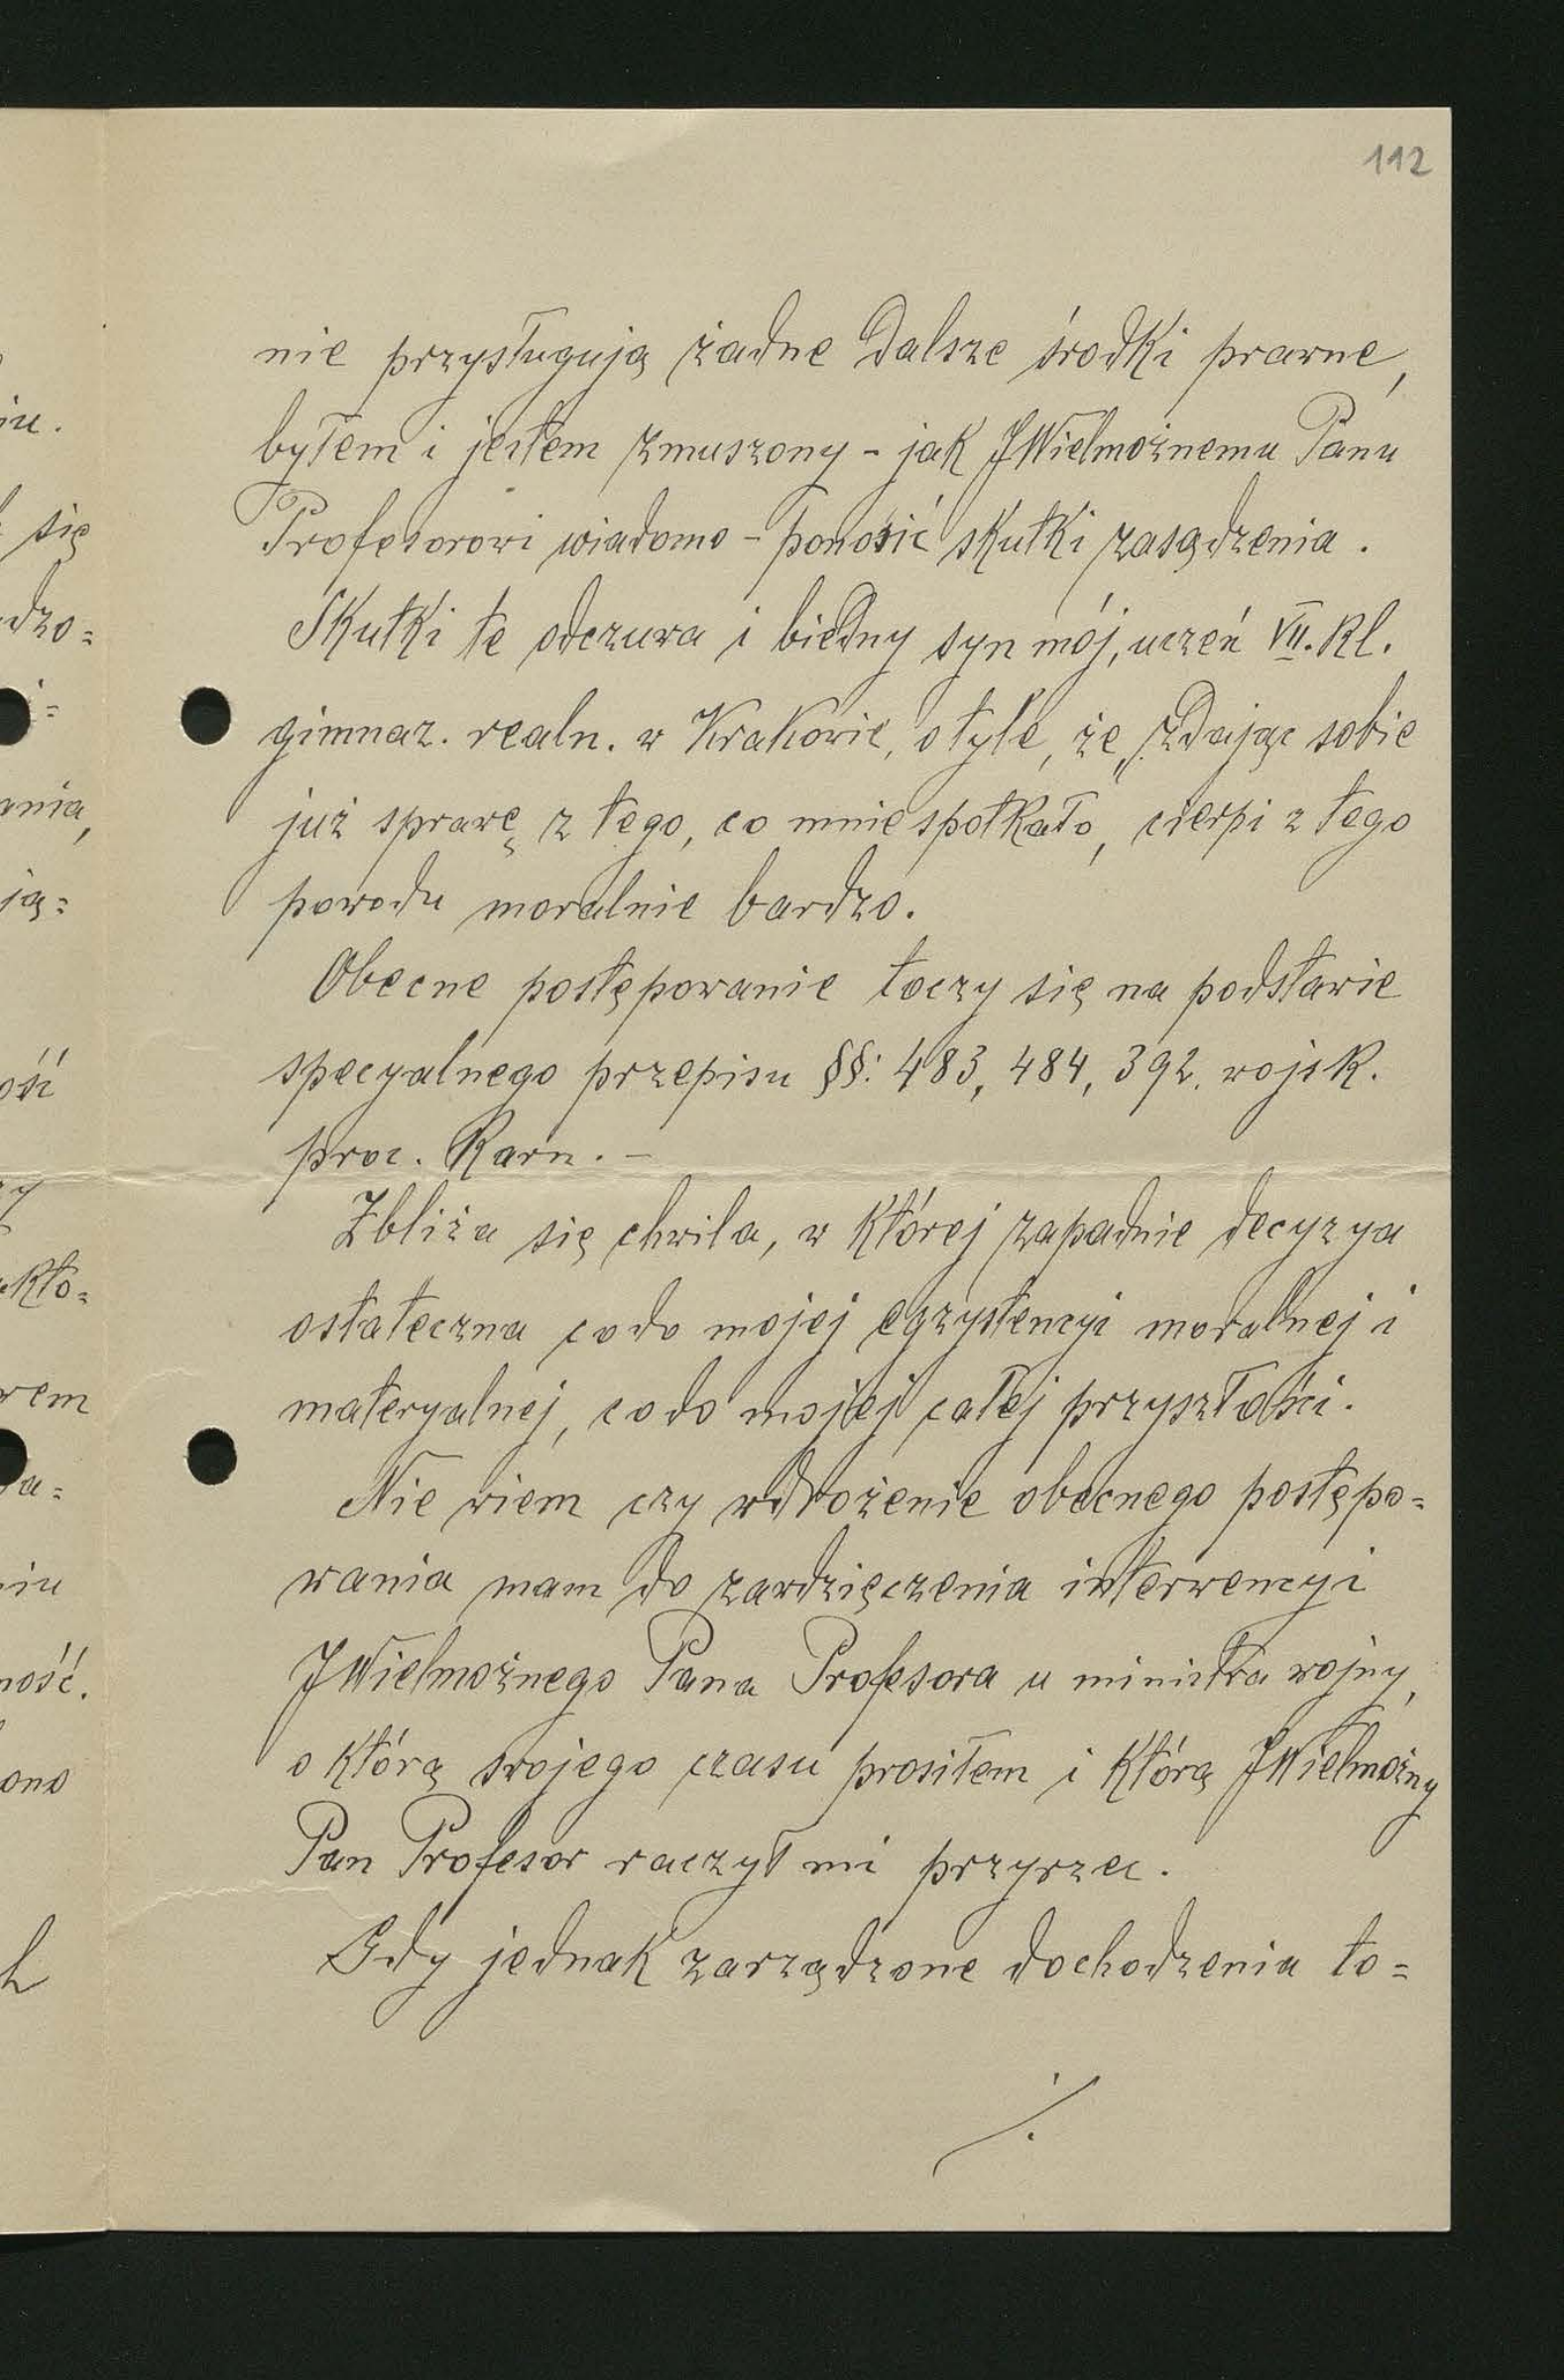 112
nie przysługują żadne dalsze środki prawne,
byłem i jestem zmuszony - jak JWielmożnemu Panu
Profesorowi wiadomo - ponosić skutki zasądzenia.
Skutki te odczuwa i biedny syn mój, uczeń VII. kl.
gimnaz. realn. w Krakowie, o tyle, że, zdając sobie
już sprawę z tego, co mnie spotkało, cierpi z tego
powodu moralnie bardzo.
Obecne postępowanie toczy się na podstawie
specyalnego przepisu §§: 483, 484, 392. wojsk.
proc. karn. -
Zbliża się chwila, w której zapadnie decyzya
ostateczna co do mojej egzystencyi moralnej i
materyalnej, co do mojej całej przyszłości.
Nie wiem czy wdrożenie obecnego postępo=
wania mam do zawdzięczenia interwencyi
JWielmożnego Pana Profesora u ministra wojny,
o którą swojego czasu prosiłem i którą JWielmożny
Pan Profesor raczył mi przyrzec.
Gdy jednak zarządzone dochodzenia to=
./.